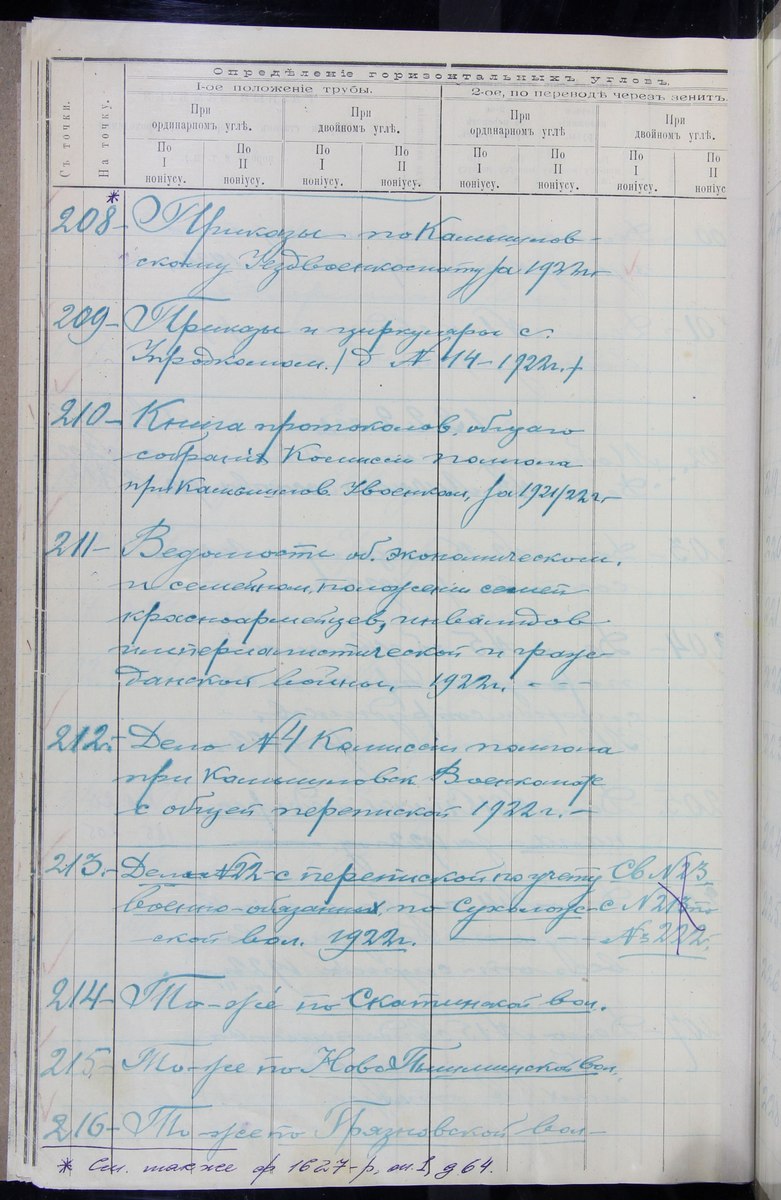 Опредѣленіе горизонтальныхъ угловъ.
Съ точки.
На точку.
I-ое положеніе трубы.
2-ое, по переводѣ черезъ зенитъ.
При ординарномъ углѣ.
При двойномъ углѣ.
При ординарномъ углѣ
При двойномъ углѣ.
По I ноніусу.
По II ноніусу.
По I ноніусу.
По II ноніусу.
По I ноніусу.
По II ноніусу.
По I ноніусу.
По II ноніус
*
208- Приказы по Камышлов-
скому Уездвоенкомату за 1922г.
209- Приказы и циркуляры с.
Упродкомом. / д № 14 - 1922г. /
210- Книга протоколов. общаго
собрания Комиссии помгола
при Камышлов. Увоенком. за 1921/22г.
211- Ведомости об. экономическом.
и семейном. положении семей
красноармейцев, инвалидов
империалистической и граж-
данской войны. - 1922г. - - -
212.- Дело №4 Комиссии помгола
при Камышловск Военкомате
с общей перепиской 1922г. -
213.- Дело №22 с перепиской по учету Св №23
военно-обязанных по Сухолож- с №213 по
ской вол. 1922г. — - №222.
214- То-же по Скатинской вол.
215- То-же по Ново Пышминской вол.
216- То-же по Грязновской вол-
* См. также ф. 1627-р, оп. 1, д 64.